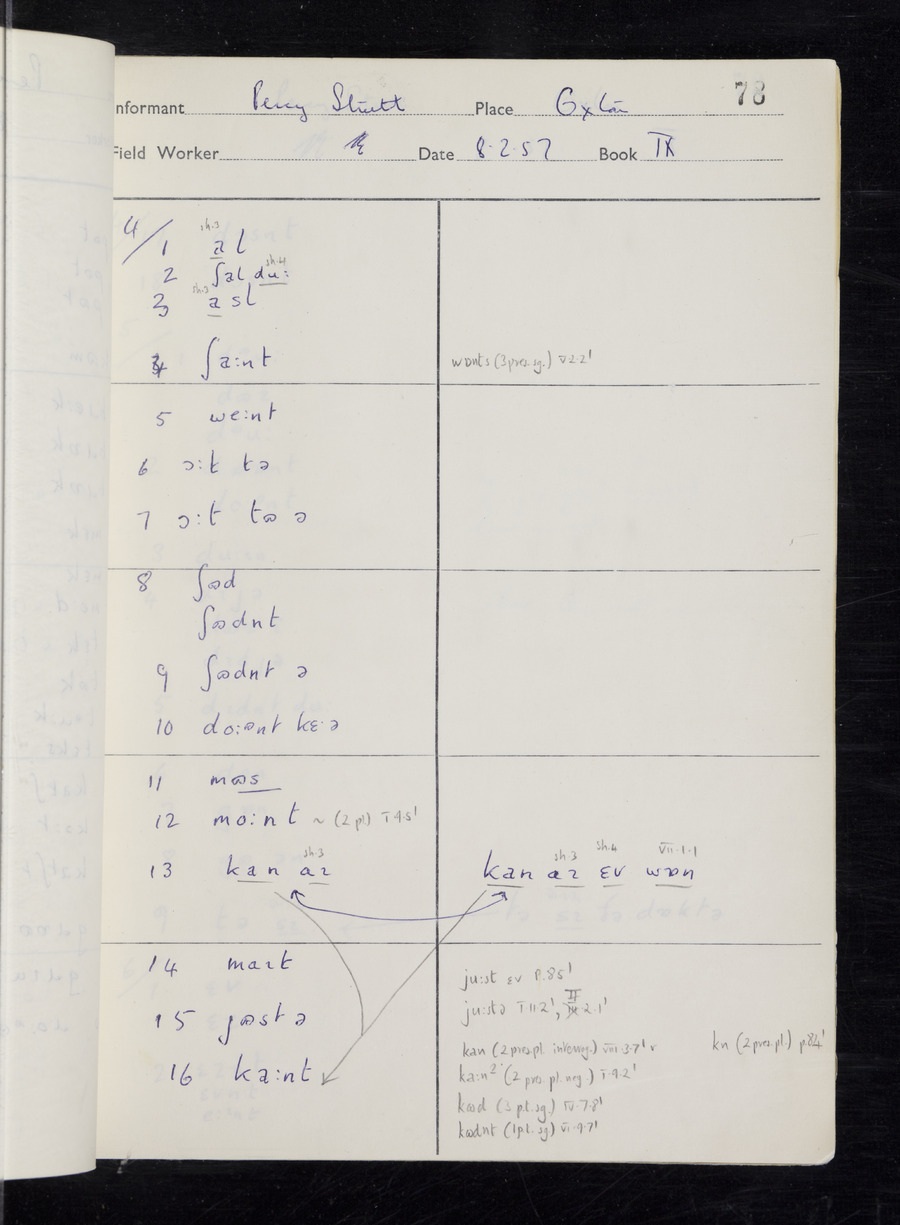 78
Informant Percy Place Oxton
Field Worker Date 8.2.57 Book IX
4/ 1 sh.3 aɩ l
2 ʃal du: sh.4
3 sh.3 a sl
4 ʃa:nt wɒnts (3 pres. sg.) V.2.2'
5 we:nt
6 ɔ:t tə
7 ɔ:t tɷ ə
8 ʃɷd
ʃɷdnt
9 ʃɷdnt ə
10 do:ənt kɛ·ə
11 mɷs
12 mo:nt ~ (2 pl) I.4.5'
13 kan aɩ sh.3 kan aɩ sh.3 ɛv sh.4 wɒn VII.1.1
14 maɪt ju:st ɛv p.85'
ju:stə I.11.2', II 2.1'
15 jɷst ə
kan (2 pres. pl. interrog.) VIII.3.7' kn (2 pres. pl.) p.84'
16 ka:nt ka:nʔ (2 pres. pl. neg.) I.9.2'
kɷd (3 p.t. sg.) IV.7.8'
kɷdnt (1 p.t. sg) VI.9.7'